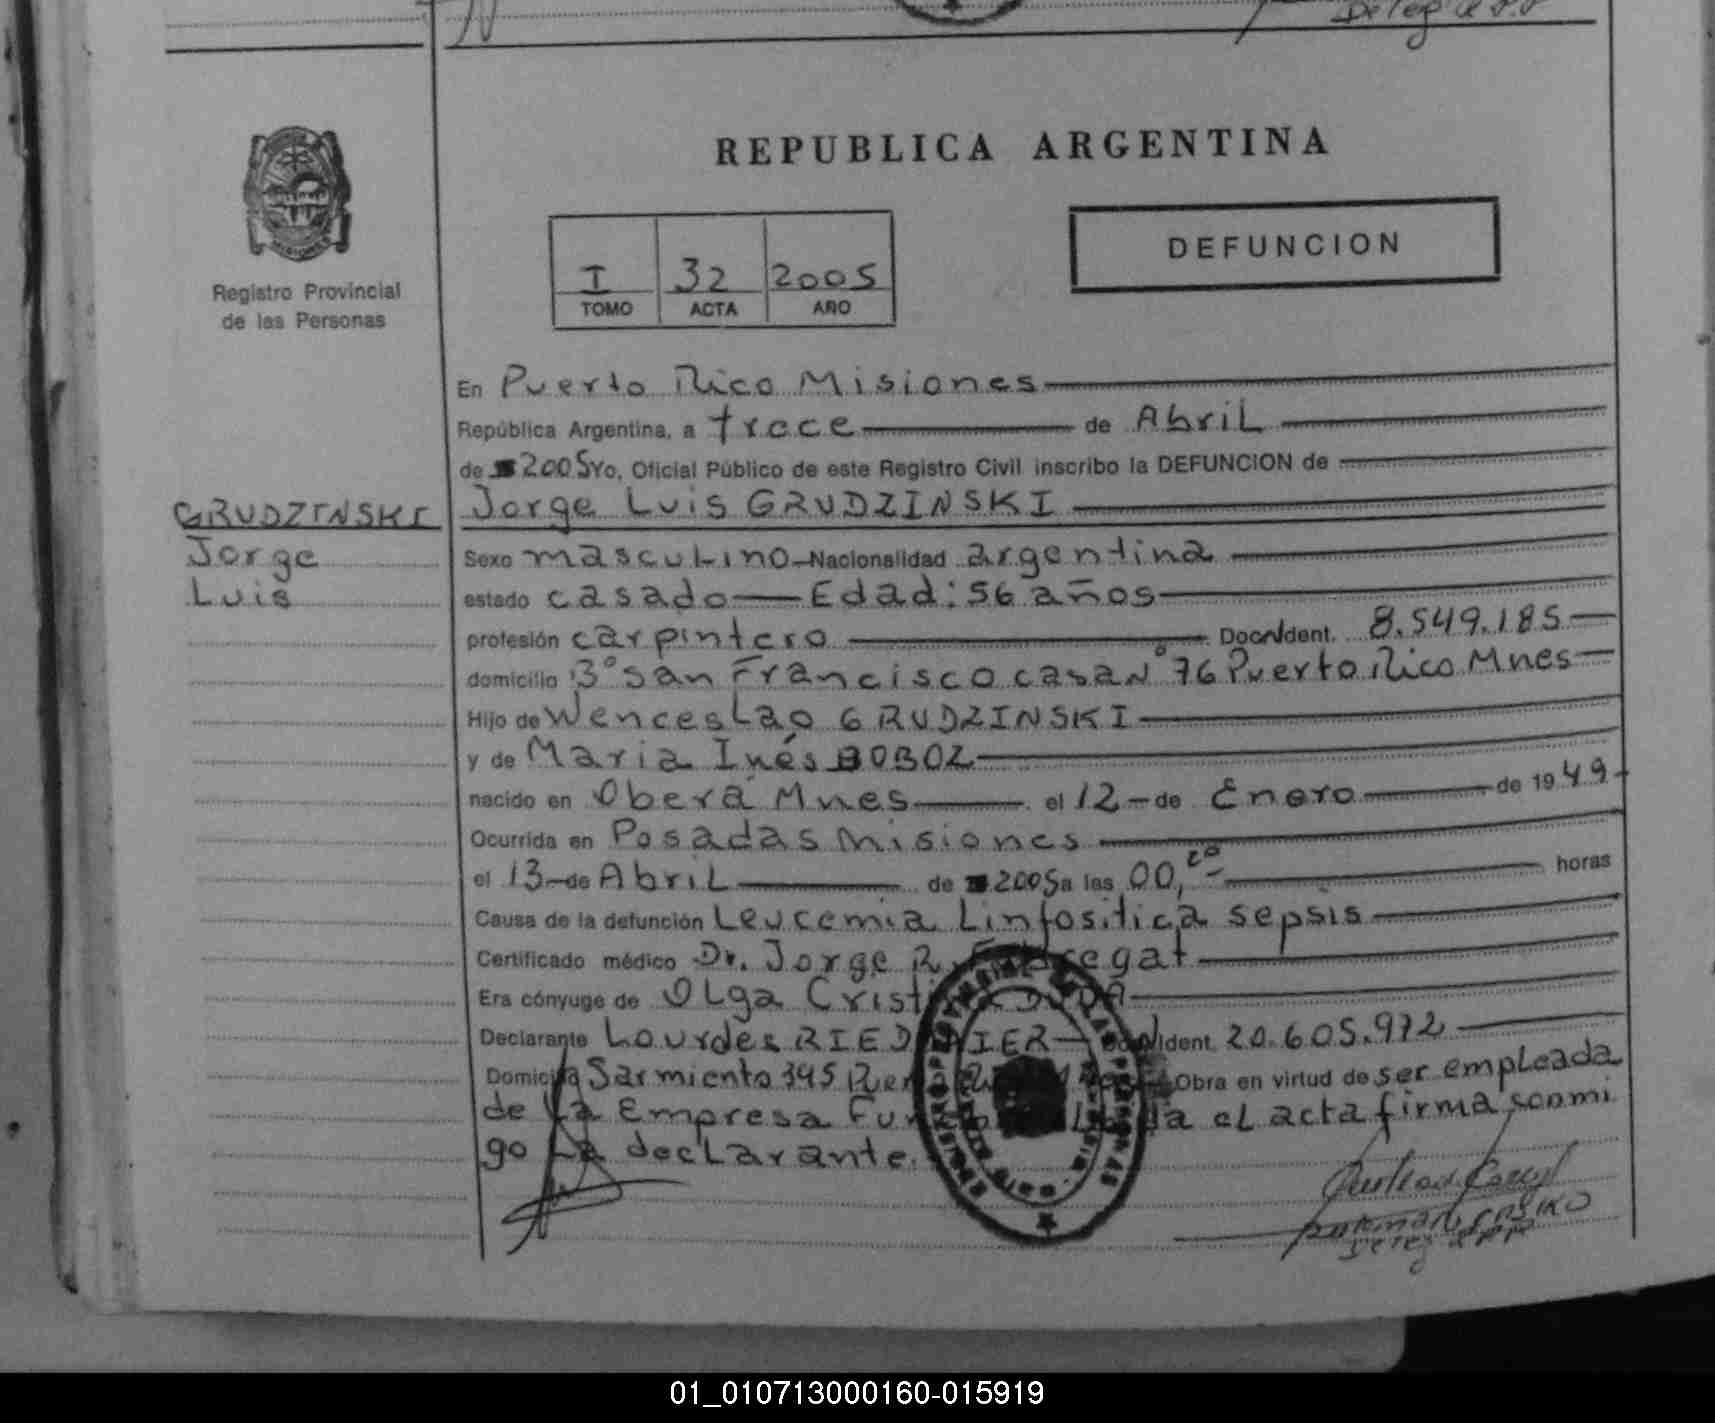 Deleg
REPUBLICA ARGENTINA
I 32 2005
TOMO ACTA AÑO
DEFUNCION
Registro Provincial
de las Personas
En Puerto Rico Misiones
República Argentina, a trece de Abril
de 2005 Yo, Oficial Público de este Registro Civil inscribo la DEFUNCION de
GRUDZINSKI
Jorge
Luis
Jorge Luis GRUDZINSKI
Sexo masculino Nacionalidad argentina
estado casado Edad: 56 años
profesión carpintero Doc. Ident. 8.549.185
domicilio 3° San Francisco casa N° 76 Puerto Rico Mnes
Hijo de Wenceslao GRUDZINSKI
y de Maria Inés BOBOZ
nacido en Oberá Mnes el 12 de Enero de 1949
Ocurrida en Posadas Misiones
el 13 de Abril de 2005 a las 00, horas
Causa de la defunción Leucemia Linfositica sepsis
Certificado médico Dr. Jorge R.
Era cónyuge de Olga
Declarante Lourdes Ident. 20.605.972
Domicilio Sarmiento 345 Obra en virtud de ser empleada
de La Empresa el acta firma conmi
go La declarante.
01_010713000160-015919